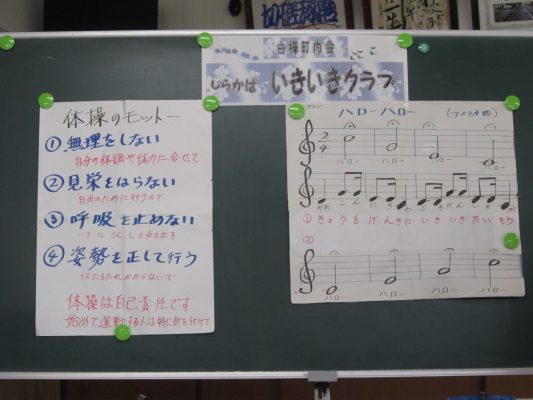 白樺町内会
しらかば いきいきクラブ
体操のモットー
① 無理をしない
自分の体調や体力に合せて
② 見栄をはらない
自分のために行うので
③ 呼吸を止めない
いち に さん しと声を出す
④ 姿勢を正して行う
体操は自己責任です
始めて運動する人は特に気を付けて
ハローハロー
(アメリカ曲)
ハロー ハロー ハロー ハロー
①きょうも げんきに いきいき たいそう
②
ハロー ハロー ハロー ハロー